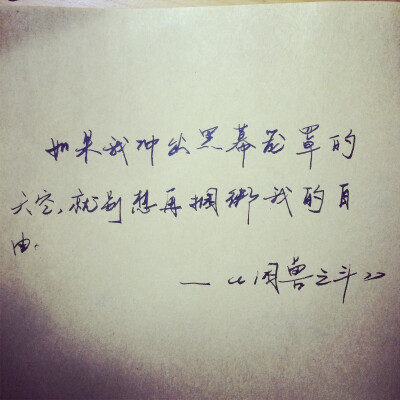 如果我冲出黑幕笼罩的
天空，就别想再捆绑我的自
由.
—《困兽之斗》